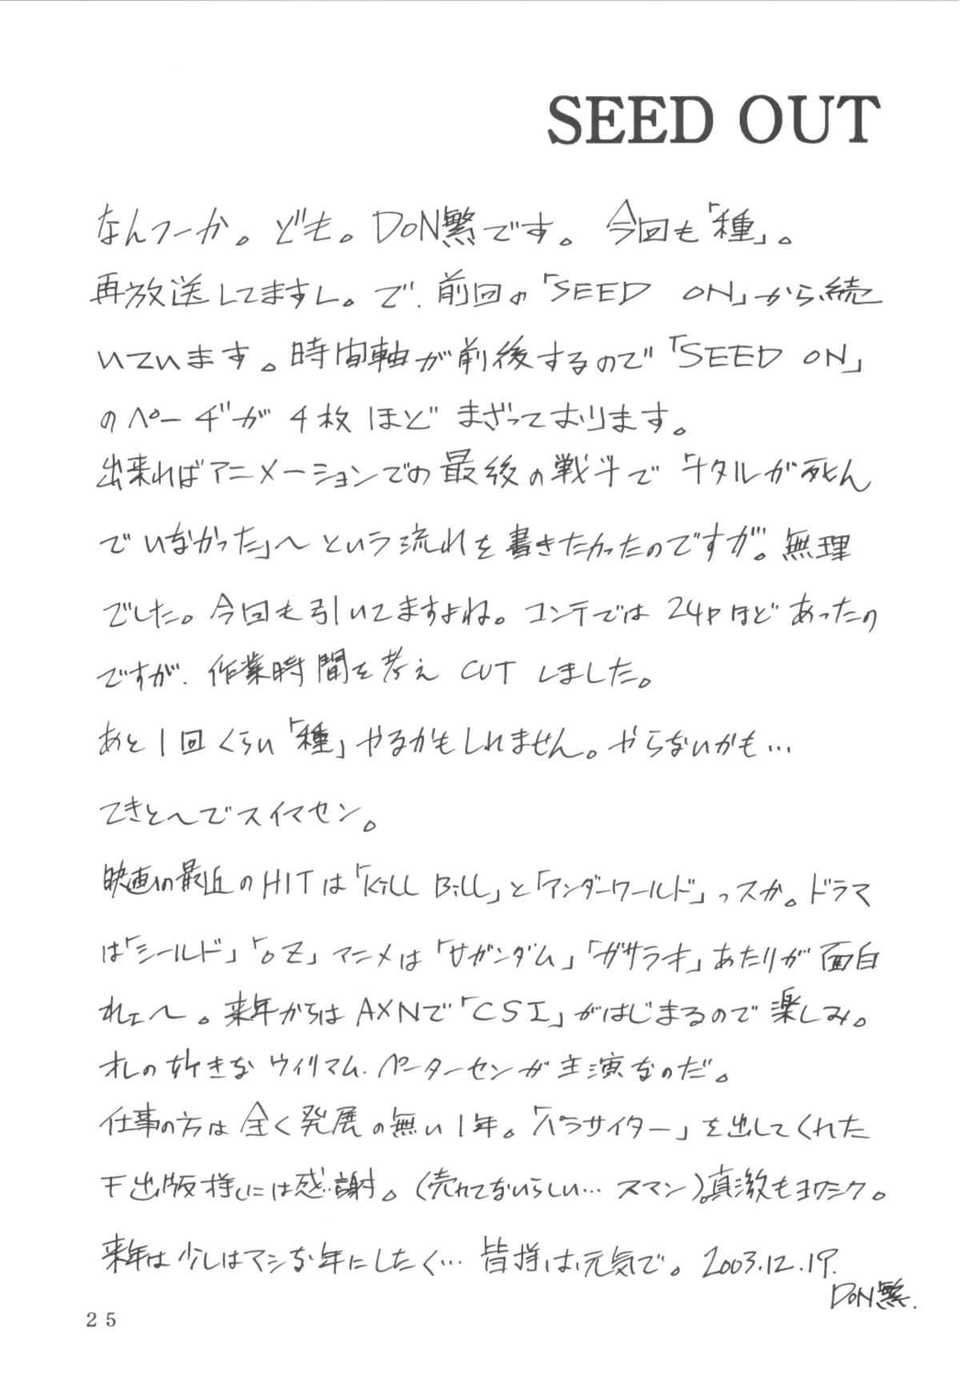 SEED OUT
なんつーか。ども。DON繁です。今回も「種」。
再放送してますし。で、前回の「SEED ON」から続
いています。時間軸が前後するので「SEED ON」
のページが4枚ほどまざっております。
出来ればアニメーションでの最後の戦斗で「ナタルが死ん
でいなかった」〜という流れを書きたかったのですが。無理
でした。今回も引いてますよね。コンテでは24Pほどあったの
ですが、作業時間を考えCUTしました。
あと1回くらい「種」やるかもしれません。やらないかも…
てきと〜でスイマセン。
映画の最近のHITは「KiLL BiLL」と「アンダーワールド」っスか。ドラマ
は「シールド」「OZ」アニメは「ガンダム」「ガサラキ」あたりが面白
れェ〜。来年からはAXNで「CSI」がはじまるので楽しみ。
オレの好きなウイリアム・ペーターセンが主演なのだ。
仕事の方は全く発展の無い1年。「パラサイター」を出してくれた
出版様には感謝。(売れてないらしい…スマン)。真激もヨロシク。
来年は少しはマシな年にしたく…皆様は元気で。2003.12.19.
DON繁.
25